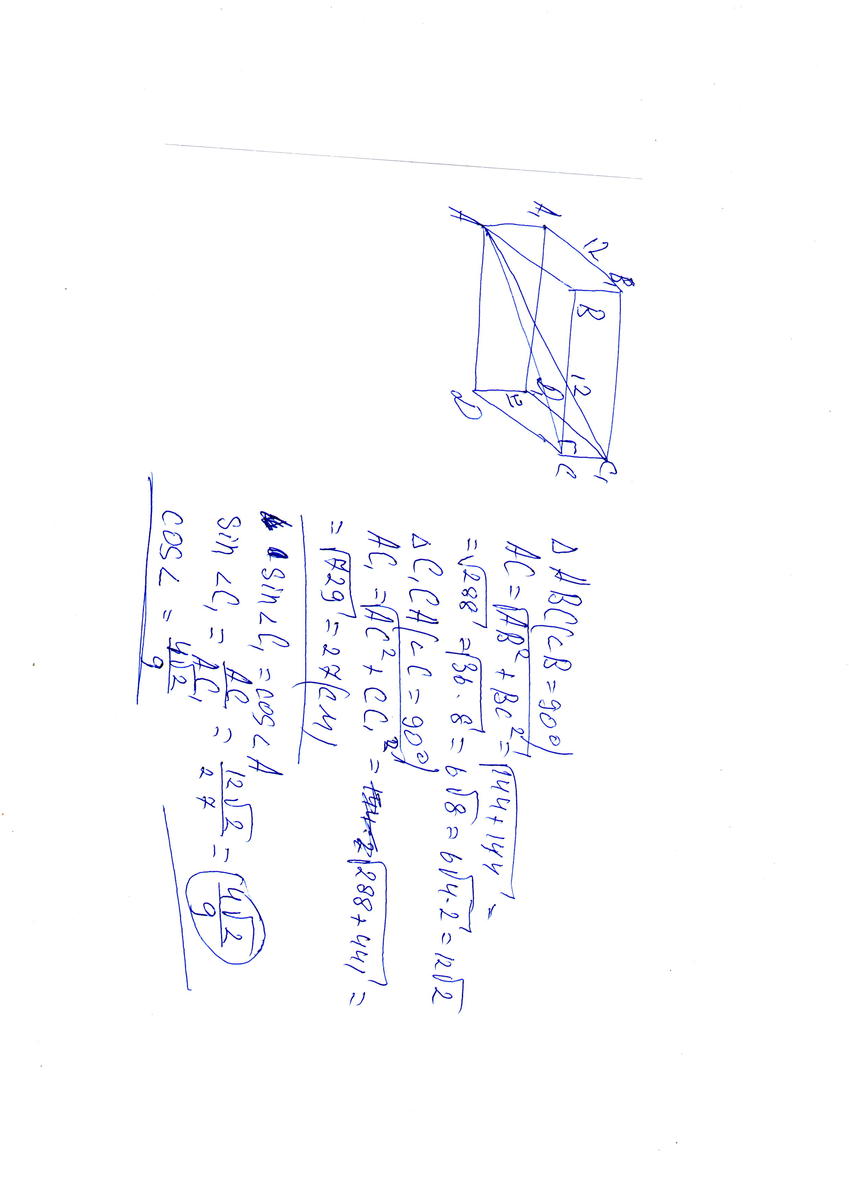 A₁
12
B₁
A
B
12
D₁
12
D
C
C₁
Δ ABC(∠B = 90°)
AC = √(AB² + BC²) = √(144+144) =
= √288 = √(36 · 8) = 6√8 = 6√(4·2) = 12√2
Δ C₁CA(∠C = 90°)
AC₁ = √(AC² + CC₁²) = √(288 + 441) =
= √729 = 27(см)
sin∠C₁ = cos∠A
sin ∠C₁ = AC/AC₁ = 12√2/27 = 4√2/9
cos∠ = 4√2/9